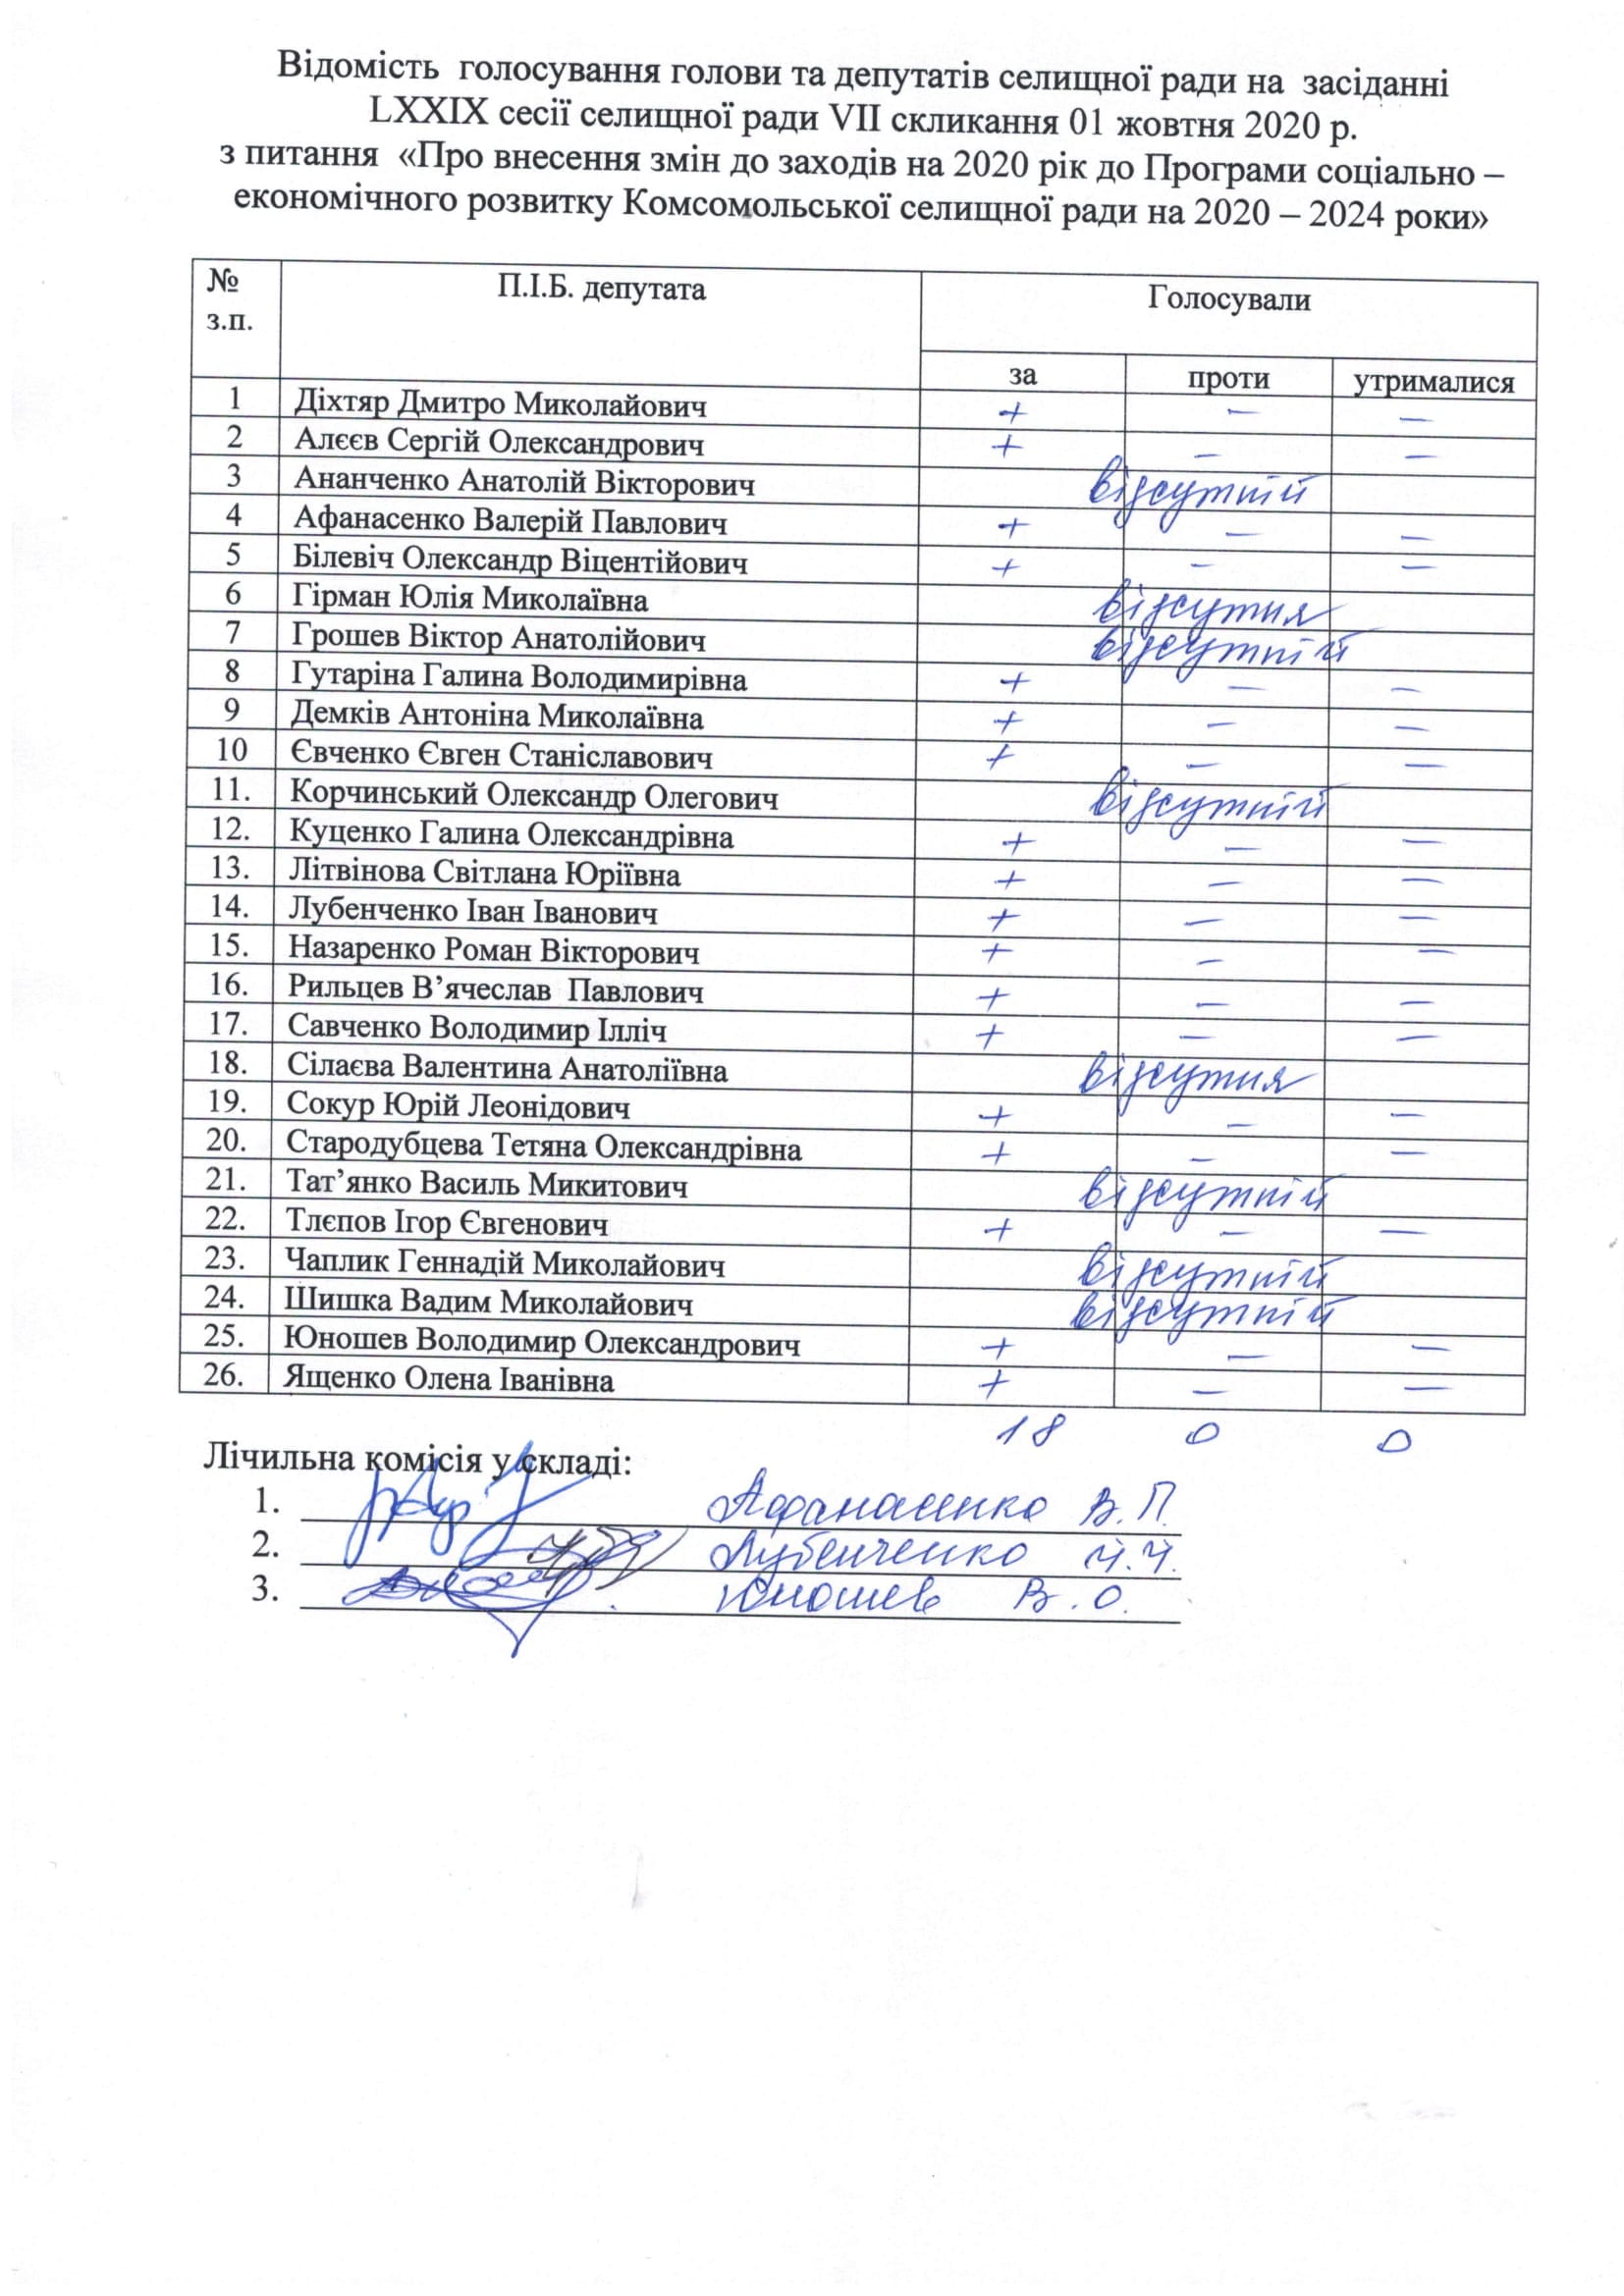 Відомість голосування голови та депутатів селищної ради на засіданні
LXXIX сесії селищної ради VII скликання 01 жовтня 2020 р.
з питання «Про внесення змін до заходів на 2020 рік до Програми соціально –
економічного розвитку Комсомольської селищної ради на 2020 – 2024 роки»
№ з.п. П.І.Б. депутата Голосували
за проти утрималися
1 Діхтяр Дмитро Миколайович + – –
2 Алєєв Сергій Олександрович + – –
3 Ананченко Анатолій Вікторович відсутній
4 Афанасенко Валерій Павлович + – –
5 Білевіч Олександр Віцентійович + – –
6 Гірман Юлія Миколаївна відсутня
7 Грошев Віктор Анатолійович відсутній
8 Гутаріна Галина Володимирівна + – –
9 Демків Антоніна Миколаївна + – –
10 Євченко Євген Станіславович + – –
11. Корчинський Олександр Олегович відсутній
12. Куценко Галина Олександрівна + – –
13. Літвінова Світлана Юріївна + – –
14. Лубенченко Іван Іванович + – –
15. Назаренко Роман Вікторович + – –
16. Рильцев В’ячеслав Павлович + – –
17. Савченко Володимир Ілліч + – –
18. Сілаєва Валентина Анатоліївна відсутня
19. Сокур Юрій Леонідович + – –
20. Стародубцева Тетяна Олександрівна + – –
21. Тат’янко Василь Микитович відсутній
22. Тлєпов Ігор Євгенович + – –
23. Чаплик Геннадій Миколайович відсутній
24. Шишка Вадим Миколайович відсутній
25. Юношев Володимир Олександрович + – –
26. Ященко Олена Іванівна + – –
18 0 0
Лічильна комісія у складі:
1. Афанасенко В.П.
2. Лубенченко И.И.
3. Юношев В.О.